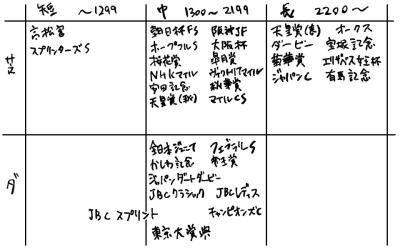 短 ～1299
中 1300～2199
長 2200～
芝
高松宮
スプリンターズS
朝日杯FS 阪神JF
ホープフルS 大阪杯
桜花賞 皐月賞
NHKマイル ヴィクトリアマイル
安田記念 秋華賞
天皇賞(秋) マイルCS
天皇賞(春) オークス
ダービー 宝塚記念
菊花賞 エリザベス女王杯
ジャパンC 有馬記念
ダ
全日本ジュニア フェブラリーS
かしわ記念 帝王賞
ジャパンダートダービー
JBCクラシック JBCレディス
JBCスプリント チャンピオンズC
東京大賞典